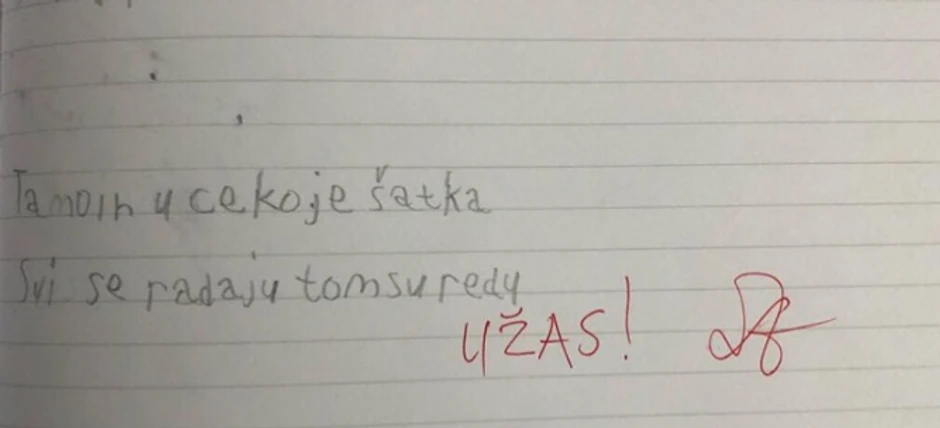 Tamoin u cekoje šatka
Svi se radaju tomsuredu
UŽAS!